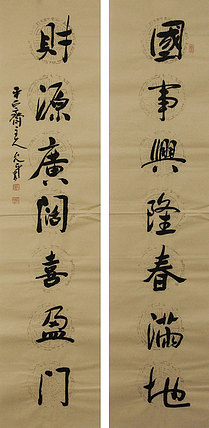 國事興隆春滿地
財源廣闊喜盈门